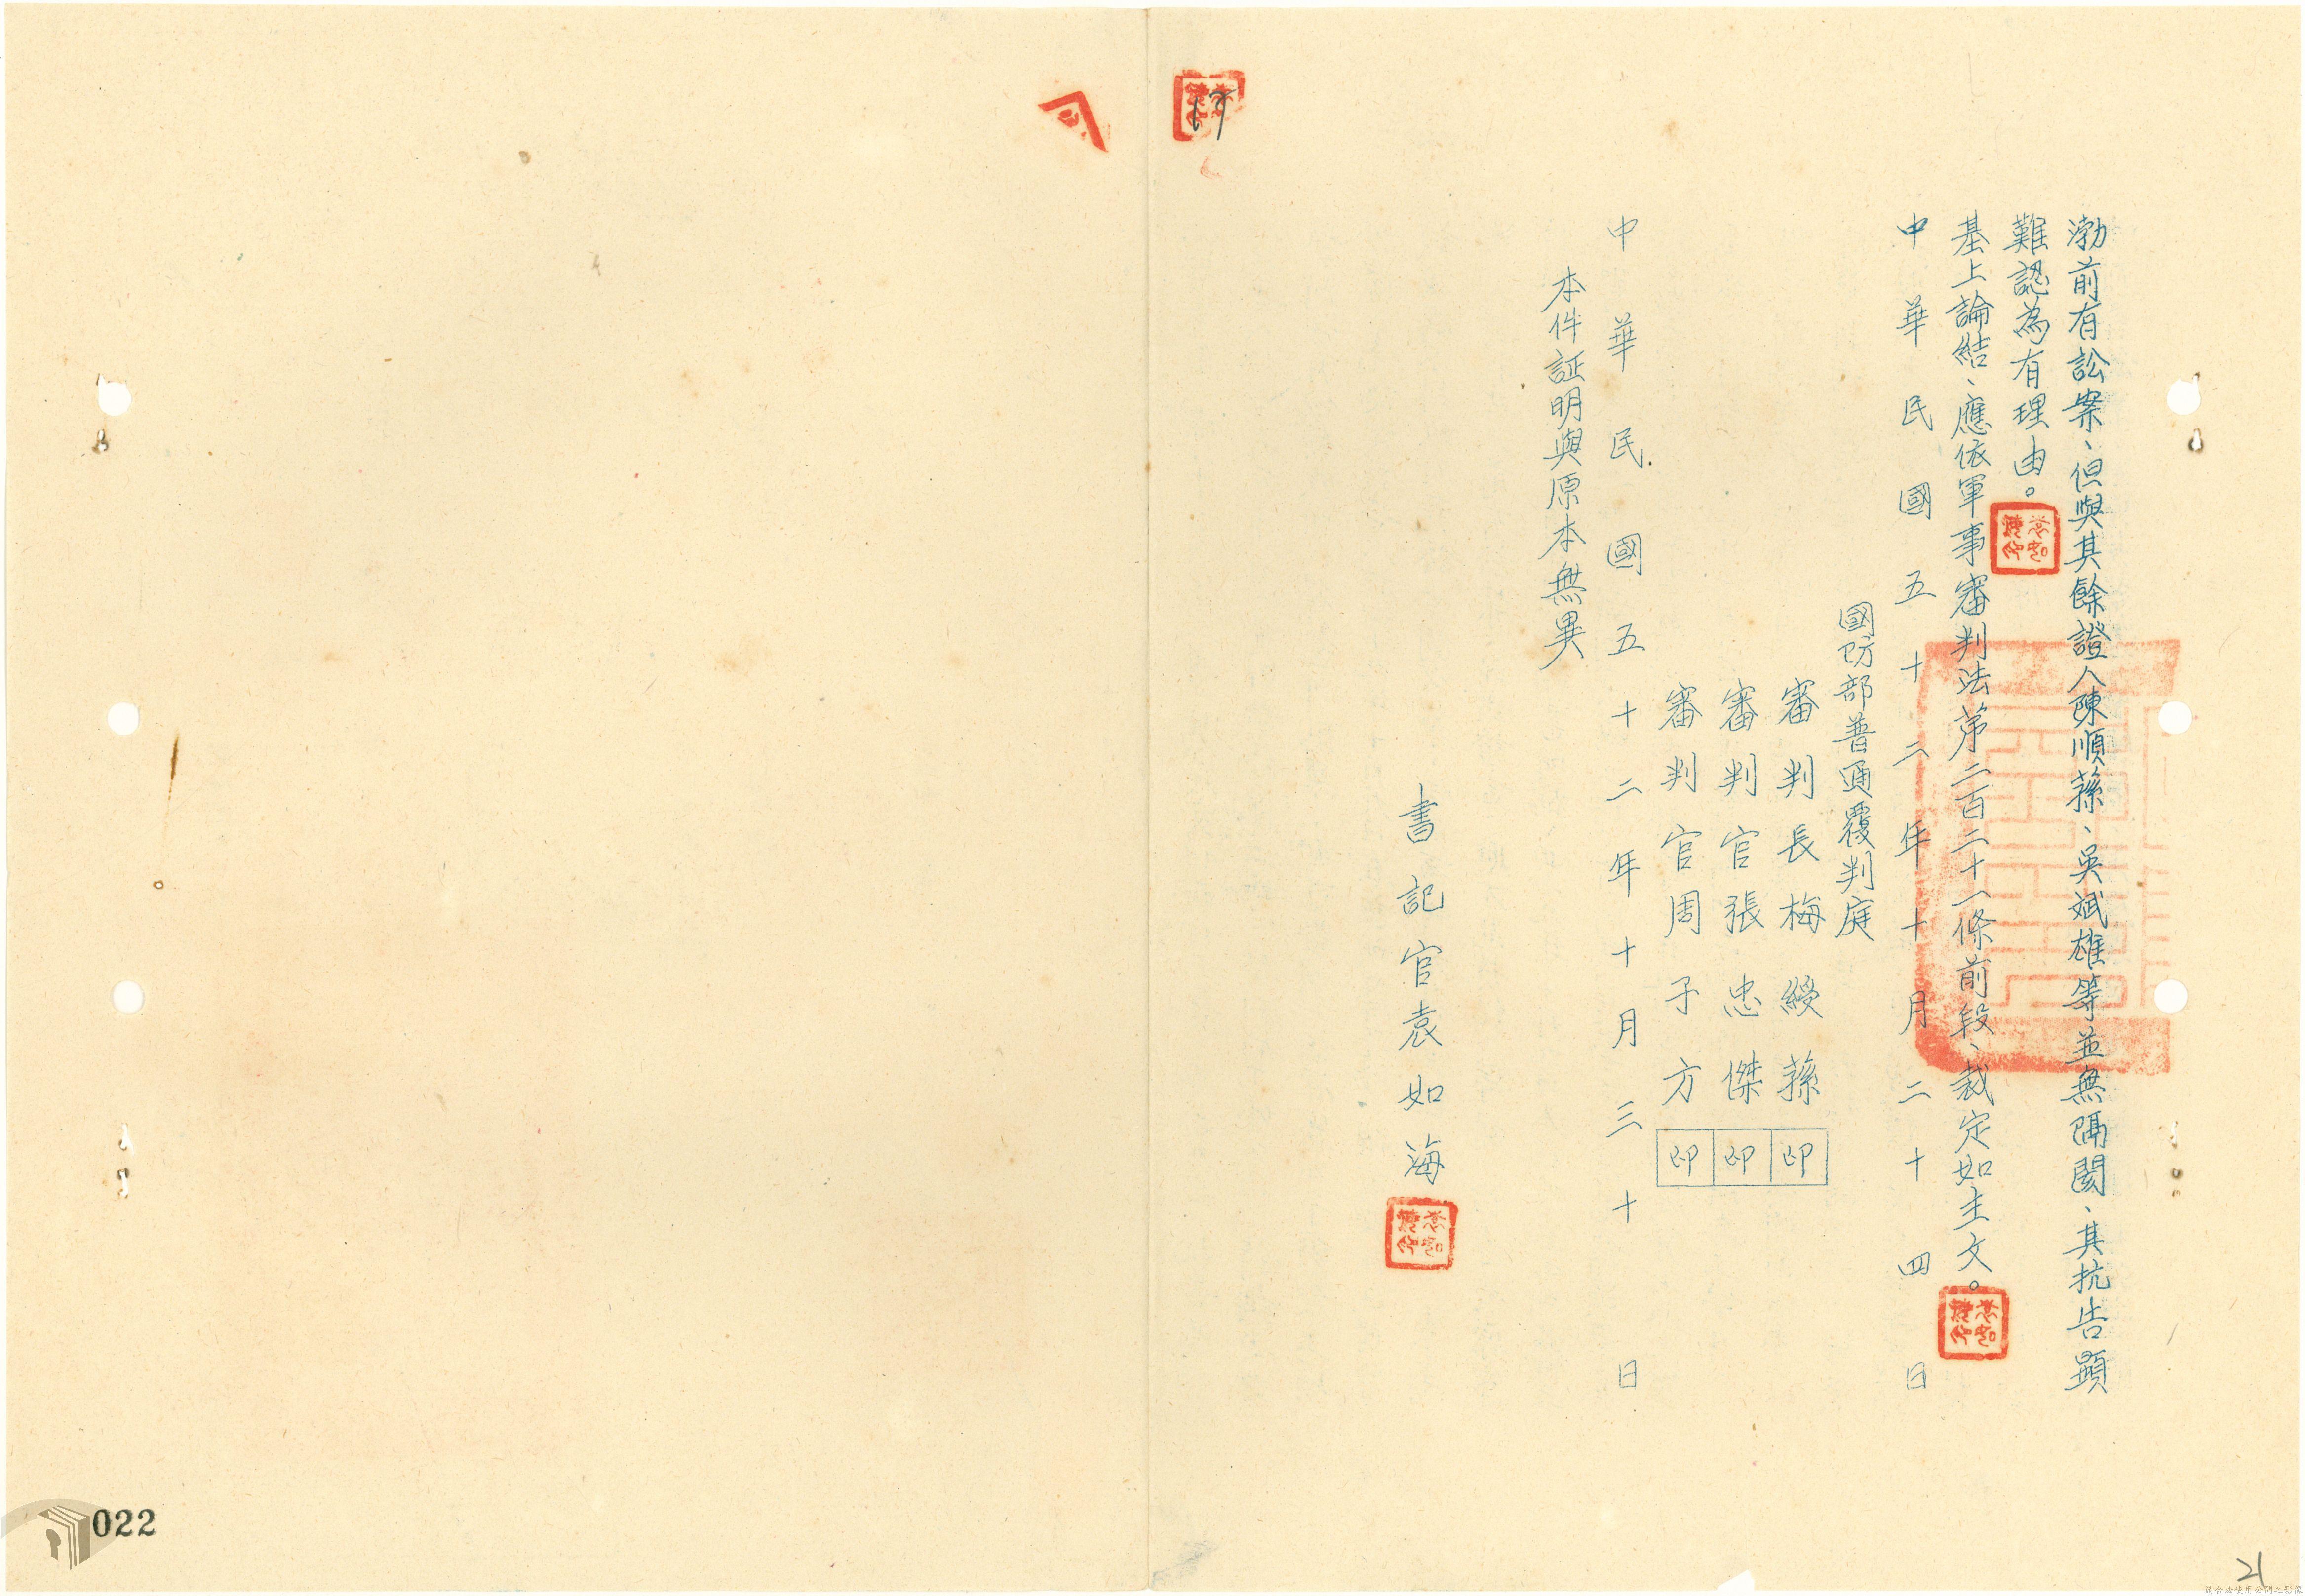 渤前有訟案、但與其餘證人陳順蓀、吳斌雄等並無隔閡、其抗告顯
難認為有理由。
基上論結、應依軍事審判法第二百二十一條前段、裁定如主文。
中華民國五十二年十月二十四日
國防部普通覆判庭
審判長梅綬蓀印
審判官張忠傑印
審判官周子方印
中華民國五十二年十月三十日
本件証明與原本無異
書記官袁如海
022
21
請合法使用公開之影像